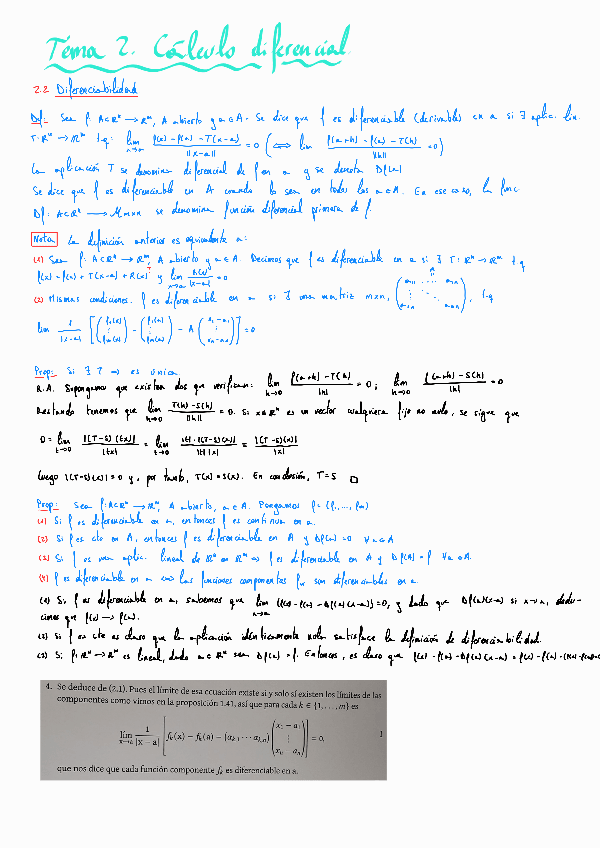 Tema 2. Cálculo diferencial
2.2 Diferenciabilidad
Def: Sea f: A⊂Rⁿ → Rᵐ, A abierto y a∈A. Se dice que f es diferenciable (derivable) en a si ∃ aplic. lin.
T: Rⁿ → Rᵐ t.q: lim x→a (f(x) - f(a) - T(x-a))/||x-a|| = 0 (⟺ lim (f(a+h) - f(a) - T(h))/||h|| = 0)
La aplicación T se denomina diferencial de f en a y se denota Df(a)
Se dice que f es diferenciable en A cuando lo sea en todos los a∈A. En ese caso, la func.
Df: A⊂Rⁿ → Mmxn se denomina función diferencial primera de f.
Nota: La definición anterior es equivalente a:
(1) Sea f: A⊂Rⁿ → Rᵐ, A abierto y a∈A. Decimos que f es diferenciable en a si ∃ T: Rⁿ → Rᵐ t.q
f(x) = f(a) + T(x-a) + R(x) y lim x→a R(x)/|x-a| = 0
(2) Mismas condiciones. f es diferenciable en a si ∃ una matriz mxn, t.q
lim 1/|x-a| [(f₁(x) ⋮ fm(x)) - (f₁(a) ⋮ fm(a)) - A (x₁-a₁ ⋮ xn-an)] = 0
Prop: Si ∃ T ⇒ es única
R.A. Supongamos que existen dos que verifican: lim h→0 (f(a+h) - T(h))/|h| = 0; lim h→0 (f(a+h) - S(h))/|h| = 0
Restando tenemos que lim h→0 (T(h) - S(h))/||h|| = 0. Si x∈Rⁿ es un vector cualquiera fijo no nulo, se sigue que
0 = lim t→0 |(T-S)(tx)|/|tx| = lim t→0 |t|·|(T-S)(x)|/|t||x| = |(T-S)(x)|/|x|
Luego |(T-S)(x)| = 0 y, por tanto, T(x) = S(x). En conclusión, T = S □
Prop: Sea f: A⊂Rⁿ → Rᵐ, A abierto, a∈A. Pongamos f = (f₁,..., fm)
(1) Si f es diferenciable en a, entonces f es continua en a.
(2) Si f es cte en A, entonces f es diferenciable en A y Df(a) = 0 ∀a∈A
(3) Si f es una aplic. lineal de Rⁿ en Rᵐ ⇒ f es diferenciable en A y Df(a) = f ∀a∈A.
(4) f es diferenciable en a ⟺ las funciones componentes fk son diferenciables en a.
(1) Si f es diferenciable en a, sabemos que lim x→a (f(x) - f(a) - Df(a)(x-a)) = 0, y dado que Df(a)(x-a) si x→a, dedu-
cimos que f(x) → f(a).
(2) Si f es cte es claro que la aplicación idénticamente nula satisface la definición de diferenciabilidad.
(3) Si f: Rⁿ → Rᵐ es lineal, dado a∈Rⁿ sea Df(a) = f. Entonces, es claro que f(x) - f(a) - Df(a)(x-a) = f(x) - f(a)
4. Se deduce de (2.1). Pues el límite de esa ecuación existe si y solo si existen los límites de las
componentes como vimos en la proposición 1.41, así que para cada k ∈ {1, . . . , m} es
lim x→a 1/|x − a| [fk(x) − fk(a) − (ak,1 ··· ak,n) (x₁ − a₁ ⋮ xn − an)] = 0,
que nos dice que cada función componente fk es diferenciable en a.